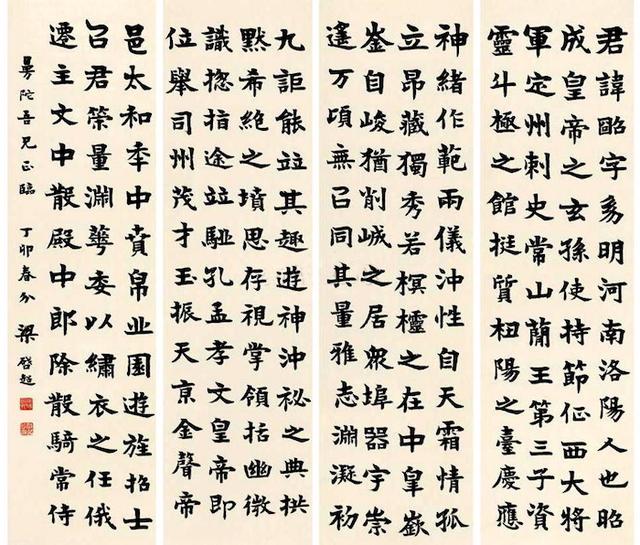 君諱昭字幼明河南洛陽人也昭
成皇帝之玄孫使持節征西大將
軍定州刺史常山簡王第三子資
靈斗極之館挺質杻陽之臺慶應
神緒作範兩儀沖性自天霜情孤
立昂藏獨秀若榠櫨之在中皐嶽
崟自峻猶削峸之居衆埠器宇崇
邃万頃無㠯同其量雅志淵凝初
九詎能竝其趣遊神沖祕之典拱
默希絶之墳思存視掌領括幽微
識揔指途竝駈孔孟孝文皇帝即
位舉司州茂才玉振天京金聲帝
邑太和年中賁帛丘園遊旌招士
召君榮量淵蕚委以繡衣之任俄
遷主文中散殿中郎除散騎常侍
曼陀吾兄正臨 丁卯春分 梁啓超